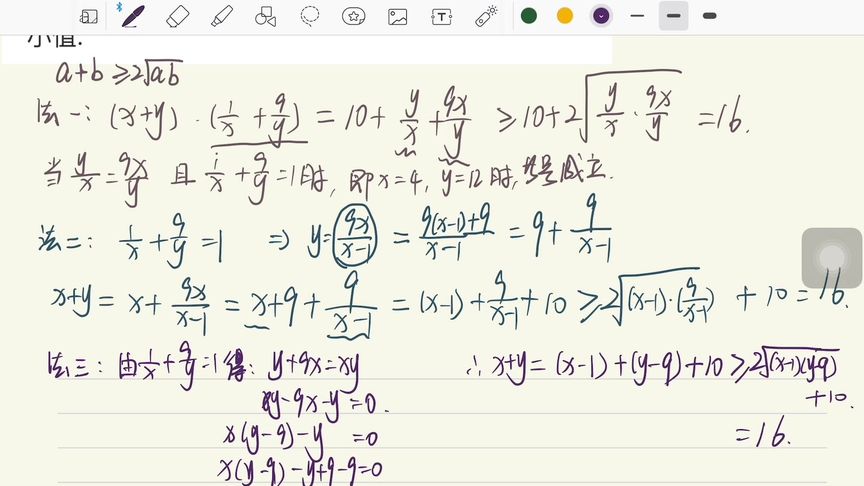 小值.
a+b≥2√ab
法一: (x+y)·(1/x+9/y)=10+y/x+9x/y≥10+2√(y/x·9x/y)=16.
当y/x=9x/y 且1/x+9/y=1时,即x=4,y=12时,等号成立.
法二: 1/x+9/y=1 ⇒ y=9x/(x-1)=(9(x-1)+9)/(x-1)=9+9/(x-1)
x+y=x+9x/(x-1)=x+9+9/(x-1)=(x-1)+9/(x-1)+10≥2√((x-1)·(9/(x-1)))+10=16.
法三: 由1/x+9/y=1得: y+9x=xy
xy-9x-y=0.
x(y-9)-y=0
x(y-9)-y+9-9=0
∴x+y=(x-1)+(y-9)+10≥2√((x-1)(y-9))
+10.
=16.